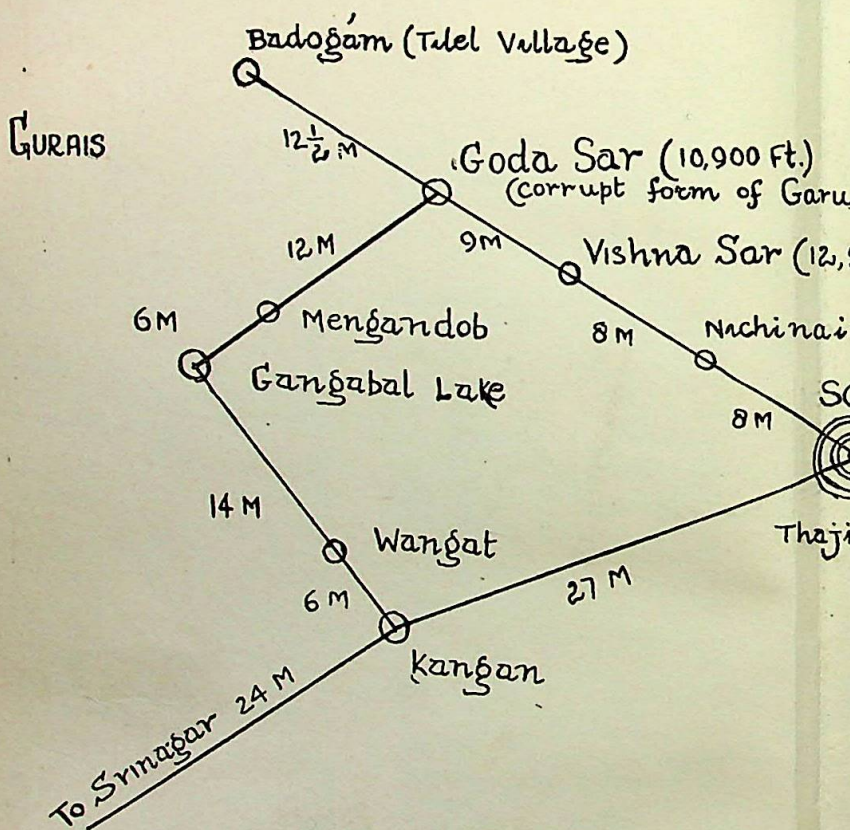 Badogám (Tilel Village)
GURAIS
12½ M
Goda Sar (10,900 Ft.)
(corrupt form of
9M
Vishna Sar
12 M
6 M
Mengandob
8 M
Nichinai
Gangabal Lake
8 M
14 M
Wangat
6 M
27 M
Kangan
To Srinagar 24 M